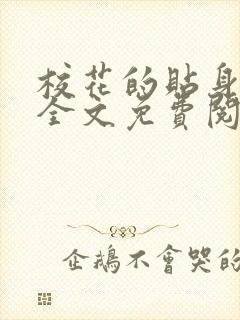 校花的貼身
全文免費閱
企鵝不會哭的